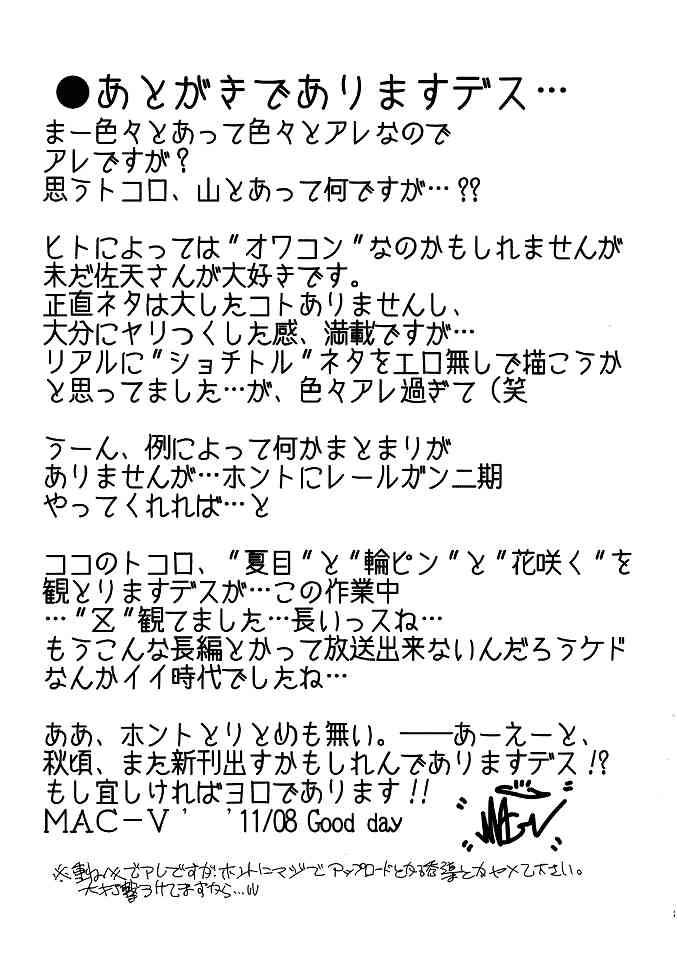 ●あとがきでありますデス…
まー色々とあって色々とアレなので
アレですが?
思うトコロ、山とあって何ですが…??
ヒトによっては”オワコン”なのかもしれませんが
未だ佐天さんが大好きです。
正直ネタは大したコトありませんし、
大分にヤリつくした感、満載ですが…
リアルに”ショチトル”ネタをエロ無しで描こうか
と思ってました…が、色々アレ過ぎて（笑
うーん、例によって何かまとまりが
ありませんが…ホントにレールガン二期
やってくれれば…と
ココのトコロ、”夏目”と”輪ピン”と”花咲く”を
観とりますデスが…この作業中
…”Z”観てました…長いっスね…
もうこんな長編とかって放送出来ないんだろうケド
なんかイイ時代でしたね…
ああ、ホントとりとめも無い。――あーえーと、
秋頃、また新刊出すかもしれんでありますデス!?
もし宜しければヨロであります!!
MAC－V ’ ’11/08 Good day
※重ね々でアレですが、ホントにマジでアップロードとかる誘導とかヤメて下さい。
大打撃うけてますから…w